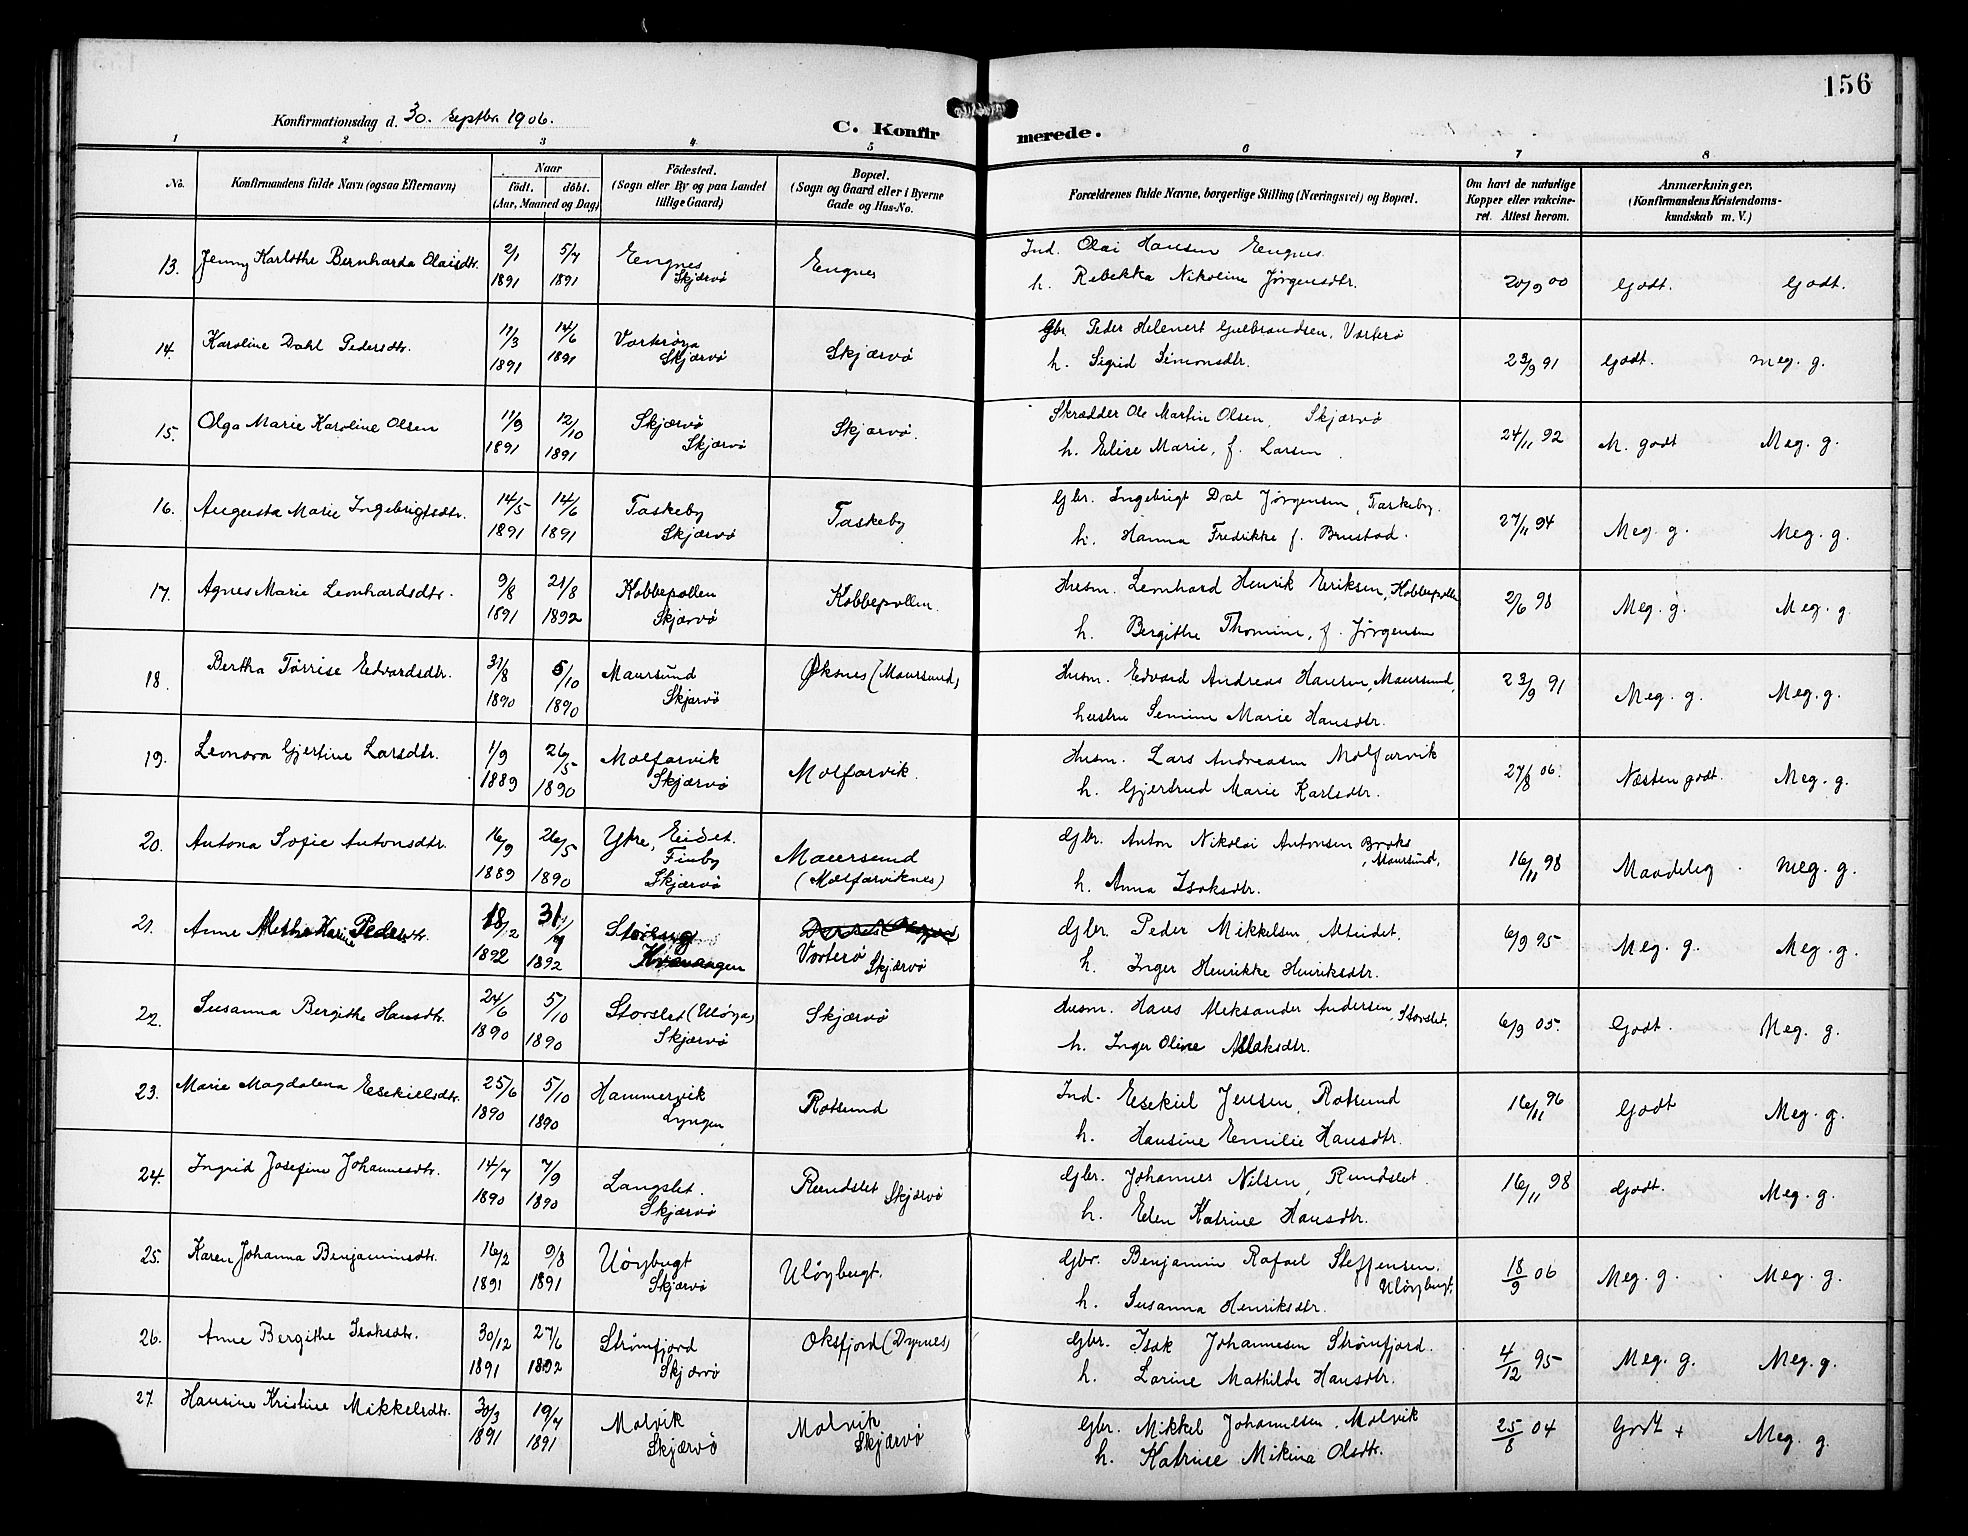 156
Konfirmationsdag d. 30. Septbr. 1906.
C. Konfirmerede.
1 2 3 4 5 6 7 8
No. Konfirmandens fulde Navn (ogsaa Efternavn) Naar födt. döbt. (Aar, Maaned og Dag) Födested. (Sogn eller By og paa Landet tillige Gaard) Bopæl. (Sogn og Gaard eller i Byerne Gade og Hus-No. Forældrenes fulde Navne, borgerlige Stilling (Næringsvei) og Bopæl. Om havt de naturlige Kopper eller vakcineret. Attest herom. Anmærkninger. (Konfirmandens Kristendomskundskab m. V.)
13. Jenny Karlothe Bernharda Olaisdtr. 2/1 1891 5/7 1891 Engnes Skjærvö Engnes Ind. Olai Hansen Engnes.
h. Rebekka Nikoline Jørgensdtr. 20/9 00 Godt. Godt.
14. Karoline Dahl Pedersdtr. 11/3 1891 14/6 1891 Vorterøya Skjærvö Skjærvö Gbr. Peder Helenert Gulbrandsen, Vorterø
h. Sigrid Simonsdtr. 23/9 91 Godt. meg. g.
15. Olga Marie Karoline Olsen 11/9 1891 12/10 1891 Skjærvö Skjærvö Skjærvö. Skrædder Ole Martin Olsen, Skjærvö
h. Elise Marie, f. Larsen. 24/11 92 M. godt Meg. g.
16. Augusta Marie Ingebrigtsdtr. 14/5 1891 14/6 1891 Taskeby Skjærvö Taskeby Gbr. Ingebrigt Dal Jørgensen, Taskeby.
h. Hanna Fredrikke f. Brustad. 27/11 94 Meg. g. Meg. g.
17. Agnes Marie Leonhardsdtr. 9/8 1891 21/8 1892 Kobbepollen Skjærvö Kobbepollen. Husm. Leonhard Henrik Eriksen, Kobbepollen
h. Bergithe Thomine, f. Jørgensen 2/6 98 Meg. g. Meg. g.
18. Bertha Tørrise Edvardsdtr. 31/8 1890 5/10 1890 Maursund Skjærvö Øksnes (Maursund) Husm. Edvard Andreas Hansen, Maursund,
hustru Simine Marie Hansdtr. 23/9 91 Meg. g. Meg. g.
19. Leonora Gjertine Larsdtr. 1/9 1889 26/5 1890 Molfarvik Skjærvö Molfarvik. Husm. Lars Andreasen Molfarvik
h. Gjertrud Marie Karlsdtr. 27/8 06. Næsten godt. Meg. g.
20. Antona Sofie Antonsdtr. 16/9 1889 26/5 1890 Ytre, Eidet. Finby Skjærvö Maursund (Molfarviknes) Gbr. Anton Nikolai Antonsen Maursund,
h. Anna Isaksdtr. 16/11 98 Maadelig. Meg. g.
21. Anne Methe Karine Pedersdtr. 18/2 1892 31/7 1892 Storeng Kvænangen Vorterø Skjærvö Gbr. Peder Mikkelsen,
h. Inger Henrikke Henriksdtr. 6/9 95 Meg. g. Meg. g.
22. Susanna Bergithe Hansdtr. 24/6 1890 5/10 1890 Storslet (Uløya) Skjærvö Skjærvö Husm. Hans Aleksander Andersen, Storslet.
h. Inger Oline Aslaksdtr. 6/9 05. Godt. Meg. g.
23. Marie Magdalena Esekielsdtr. 25/6 1890 5/10 1890 Hammervik Lyngen Rotsund Ind. Esekiel Jensen, Rotsund
h. Hansine Emilie Hansdtr. 16/11 96 Godt Meg. g.
24. Ingrid Josefine Johannesdtr. 14/7 1890 7/9 1890 Langslet. Skjærvö Rundslet Skjærvö Gbr. Johannes Nilsen, Rundslet.
h. Elen Katrine Hansdtr. 16/11 98 Godt. Meg. g.
25. Karen Johanna Benjaminsdtr. 16/2 1891 9/8 1891 Uöybugt Skjærvö Ulöybugt. Gbr. Benjamin Rafael Steffensen. Ulöybugt,
h. Susanna Henriksdtr. 18/9 06 Meg. g. Meg. g.
26. Anne Bergithe Isaksdtr. 30/12 1891 27/6 1892 Strømfjord Skjærvö Oksfjord (Dyrnes) Gbr. Isak Johannesen Strømfjord.
h. Lorine Mathilde Hansdtr. 4/12 95 Meg. g. Meg. g.
27. Hansine Kristine Mikkelsdtr. 30/3 1891 19/7 1891 Molvik Skjærvö Molvik Skjærvö Gbr. Mikkel Johannesen. Molvik
h. Katrine Mikina Olsdtr. 25/8 04 Godt + Meg. g.